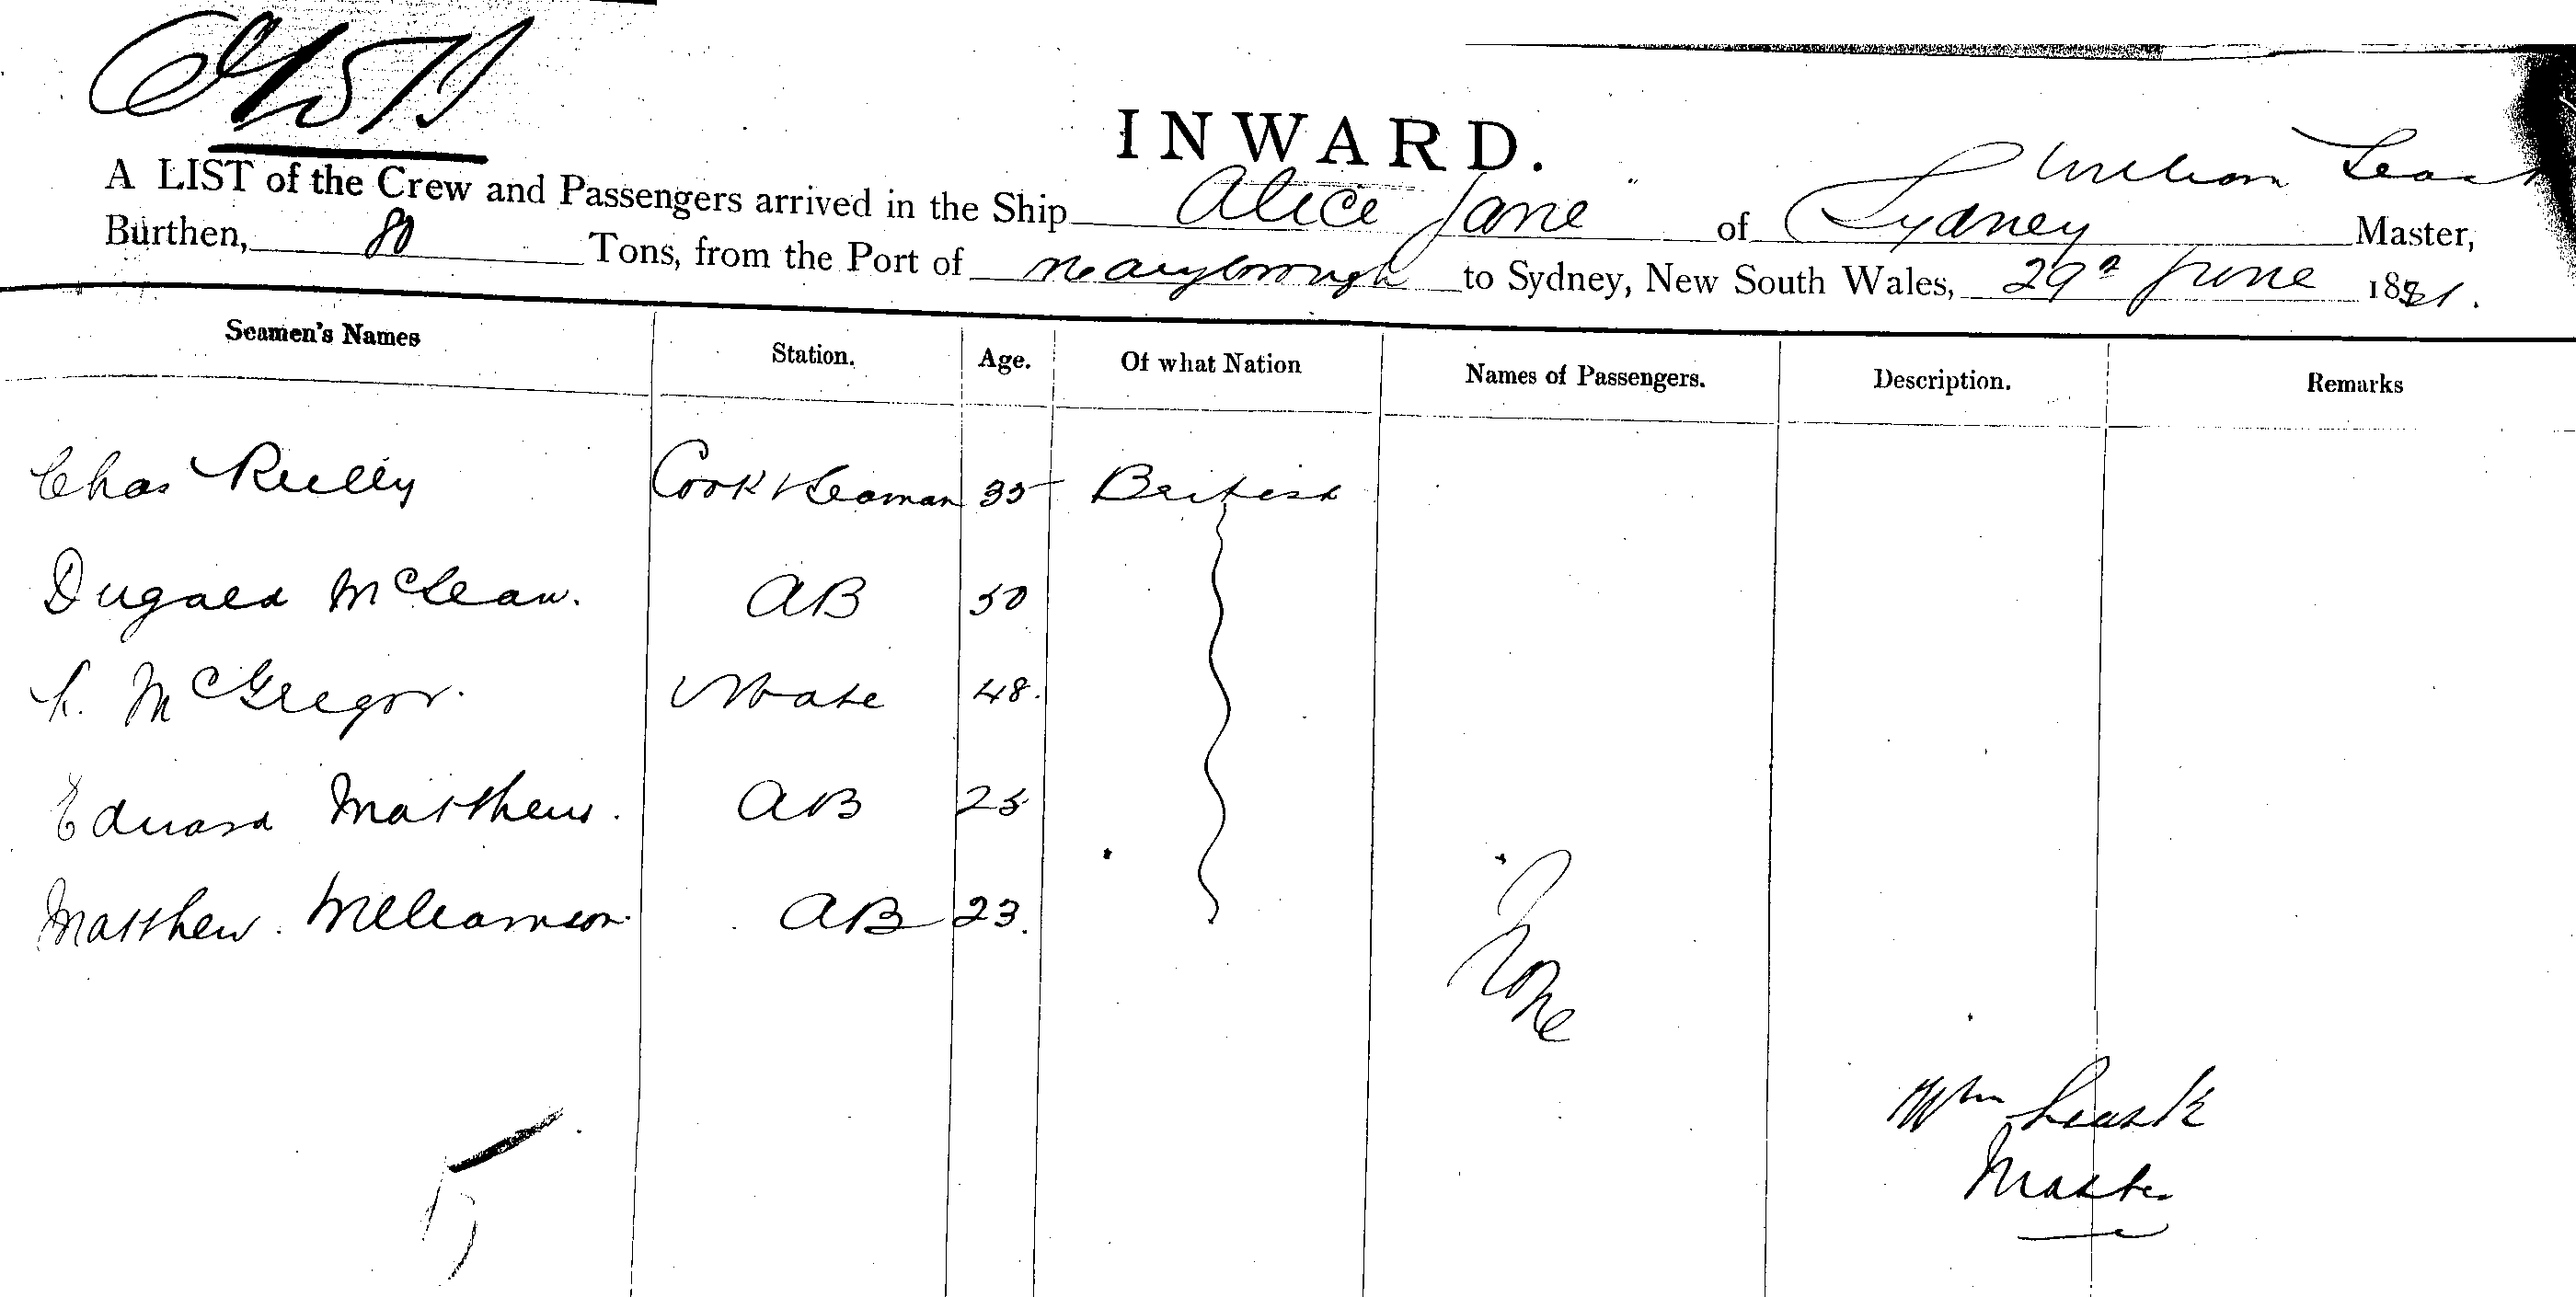 INWARD.
William Leask
A LIST of the Crew and Passengers arrived in the Ship Alice Jane of Sydney Master,
Burthen, 80 Tons, from the Port of Maryborough to Sydney, New South Wales, 29th June 1881.
Seamen's Names Station. Age. Of what Nation Names of Passengers. Description. Remarks
Chas Reilly Cook & Seaman 35 British
Dugald McLean. AB 50
McGregor. Mate 48.
Edward Matthews. AB 25
Matthew Williamson AB 23.
None
5
Wm Leask
Master